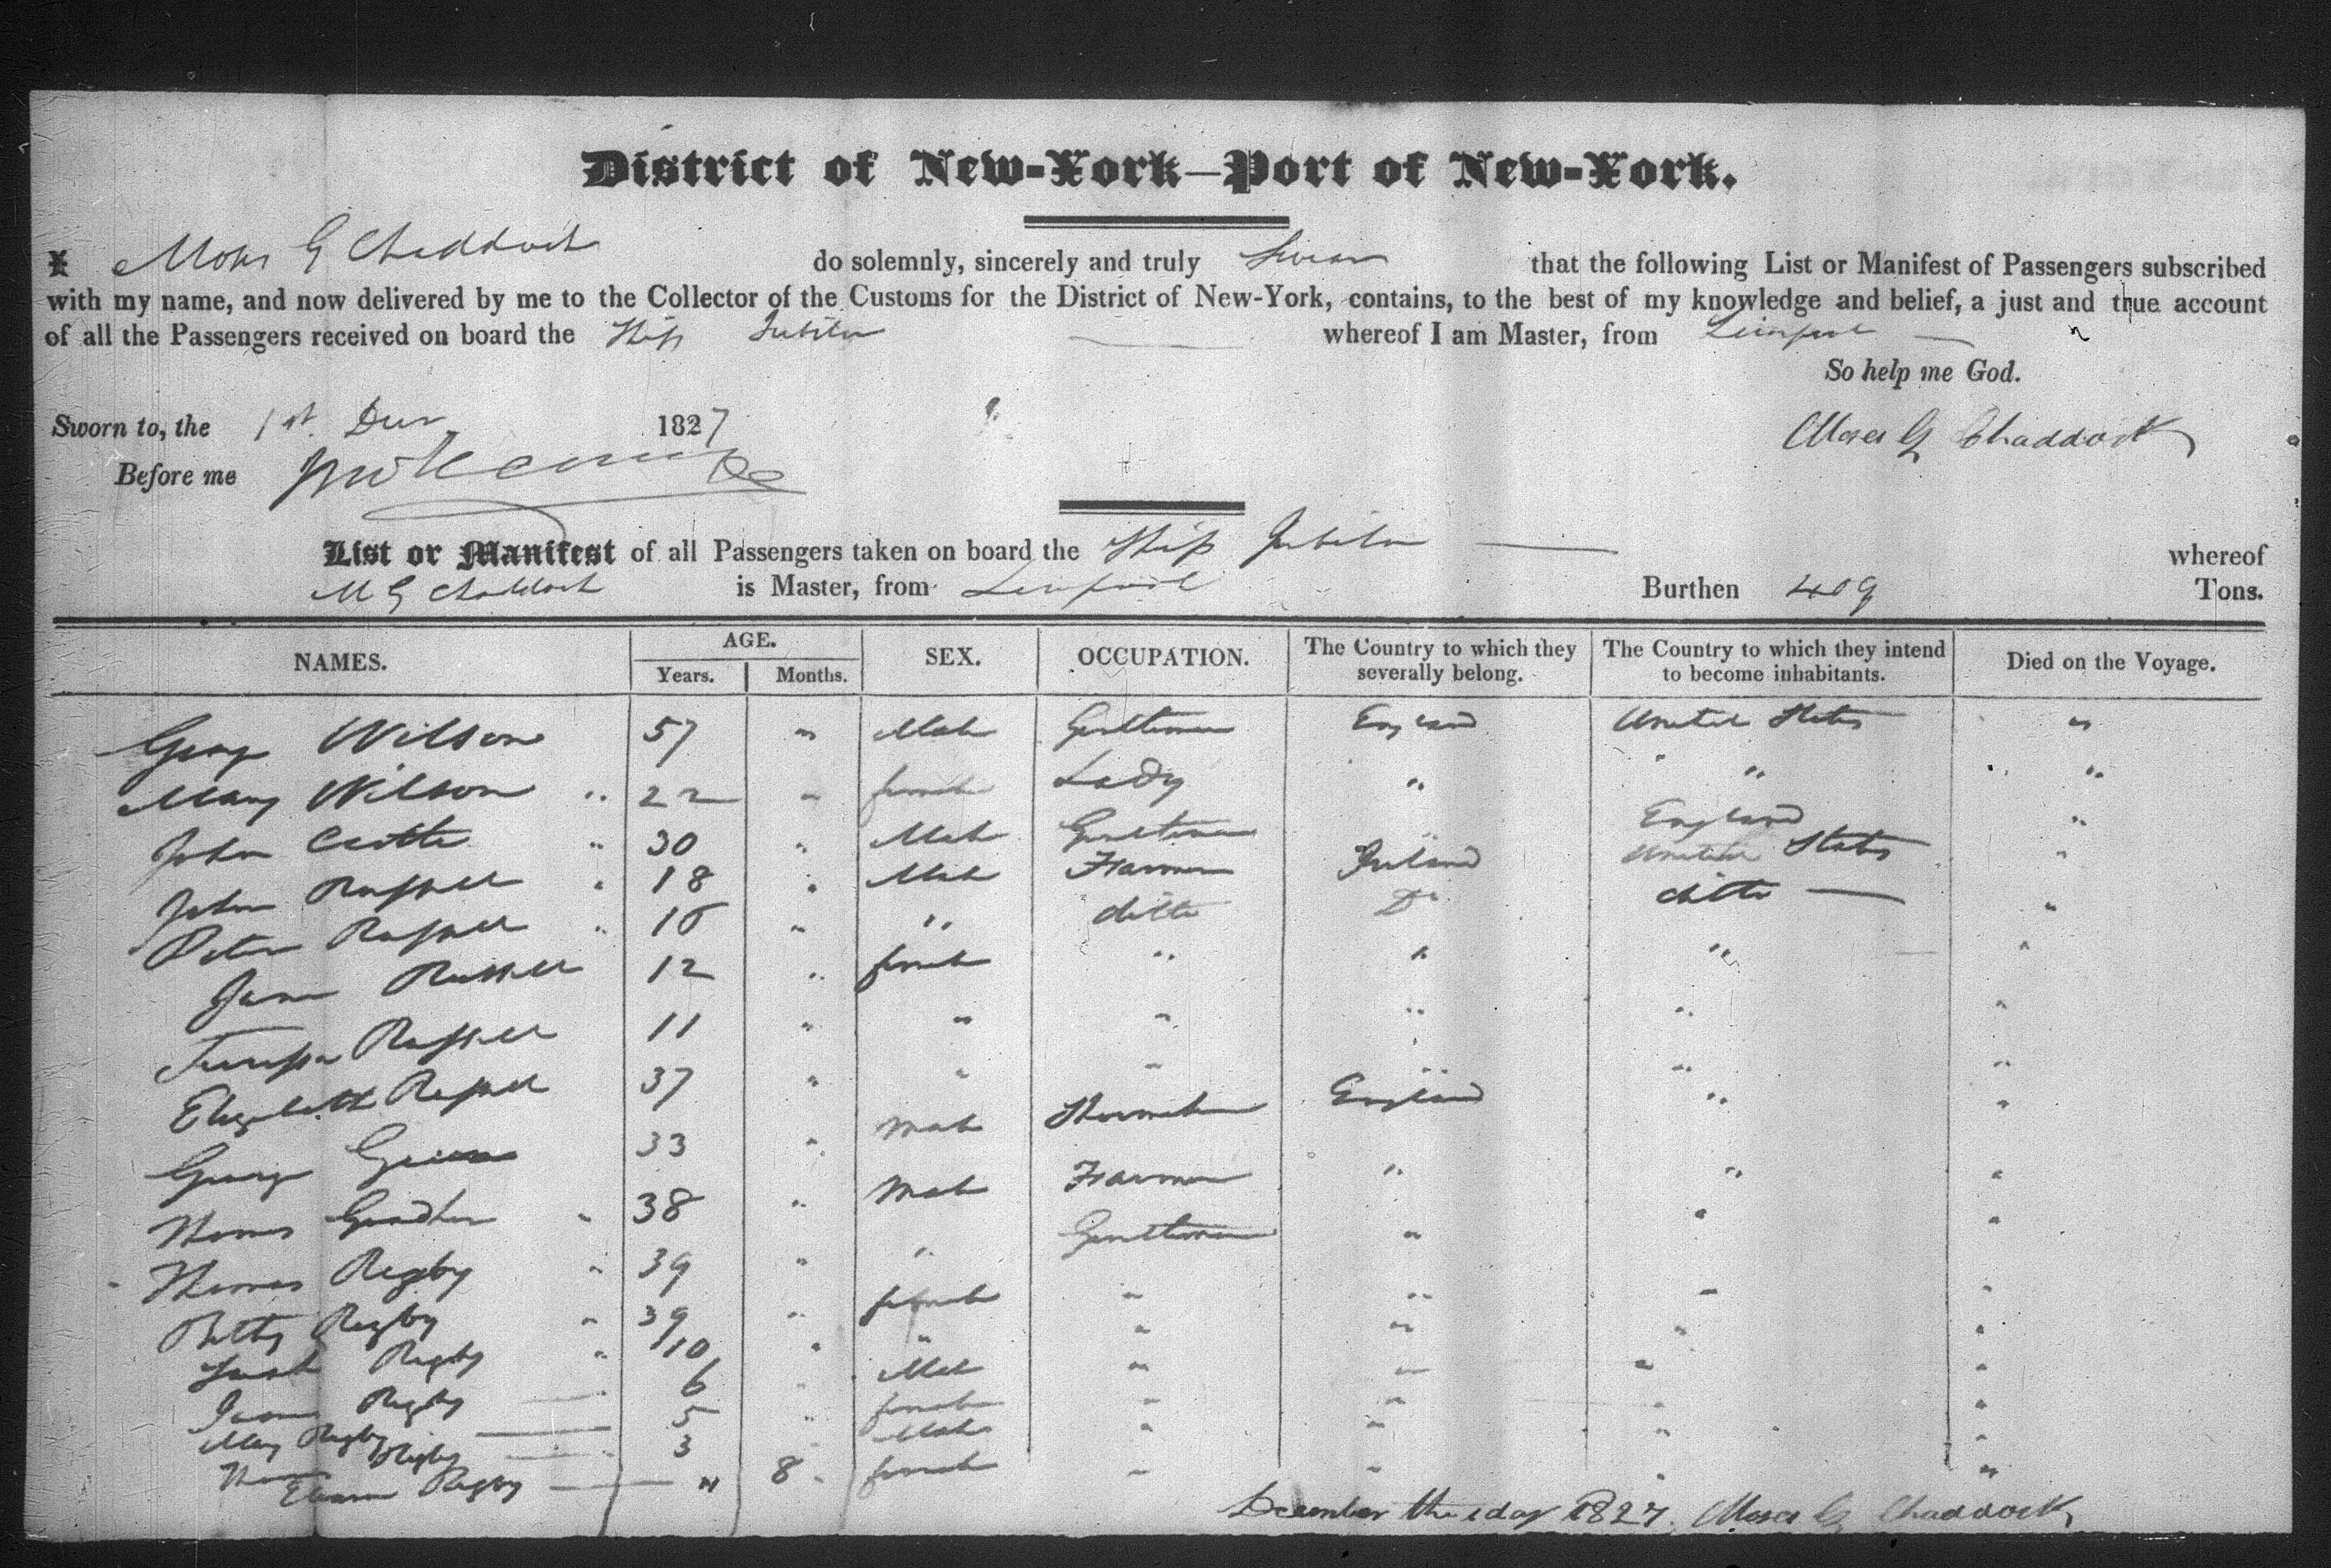 District of New-York—Port of New-York.
I Moses G Chaddock do solemnly, sincerely and truly Swear that the following List or Manifest of Passengers subscribed
with my name, and now delivered by me to the Collector of the Customs for the District of New-York, contains, to the best of my knowledge and belief, a just and true account
of all the Passengers received on board the Ship Jubilee whereof I am Master, from Liverpool
So help me God.
Sworn to, the 1st Decr 1827 Moses G Chaddock
Before me
List or Manifest of all Passengers taken on board the Ship Jubilee whereof
M G Chaddock is Master, from Liverpool Burthen 409 Tons.
NAMES. AGE. Years. Months. SEX. OCCUPATION. The Country to which they severally belong. The Country to which they intend to become inhabitants. Died on the Voyage.
George Wilson 57 " Male Gentleman England United States "
Mary Wilson " 22 " female Lady " " "
John " 30 " Male Gentleman England "
John Russell " 18 " Male Farmer Ireland United States "
Peter Russell " 16 " " ditto Do ditto "
Jane Russell 12 " female " " " "
Russell 11 " " " " " "
Elizabeth Russell 37 " " " " " "
George Green 33 " Male England " "
Thomas " 38 " Male Farmer " " "
Thomas Rigby " 39 " " Gentleman " " "
Betty Rigby " 39 " female " " " "
Sarah Rigby " 10 " " " " " "
James Rigby 6 " Male " " " "
Mary Rigby 5 " female " " " "
Thomas Rigby 3 " Male " " " "
Eleanor Rigby " 8 female " " " "
December the 1 day 1827. Moses G Chaddock